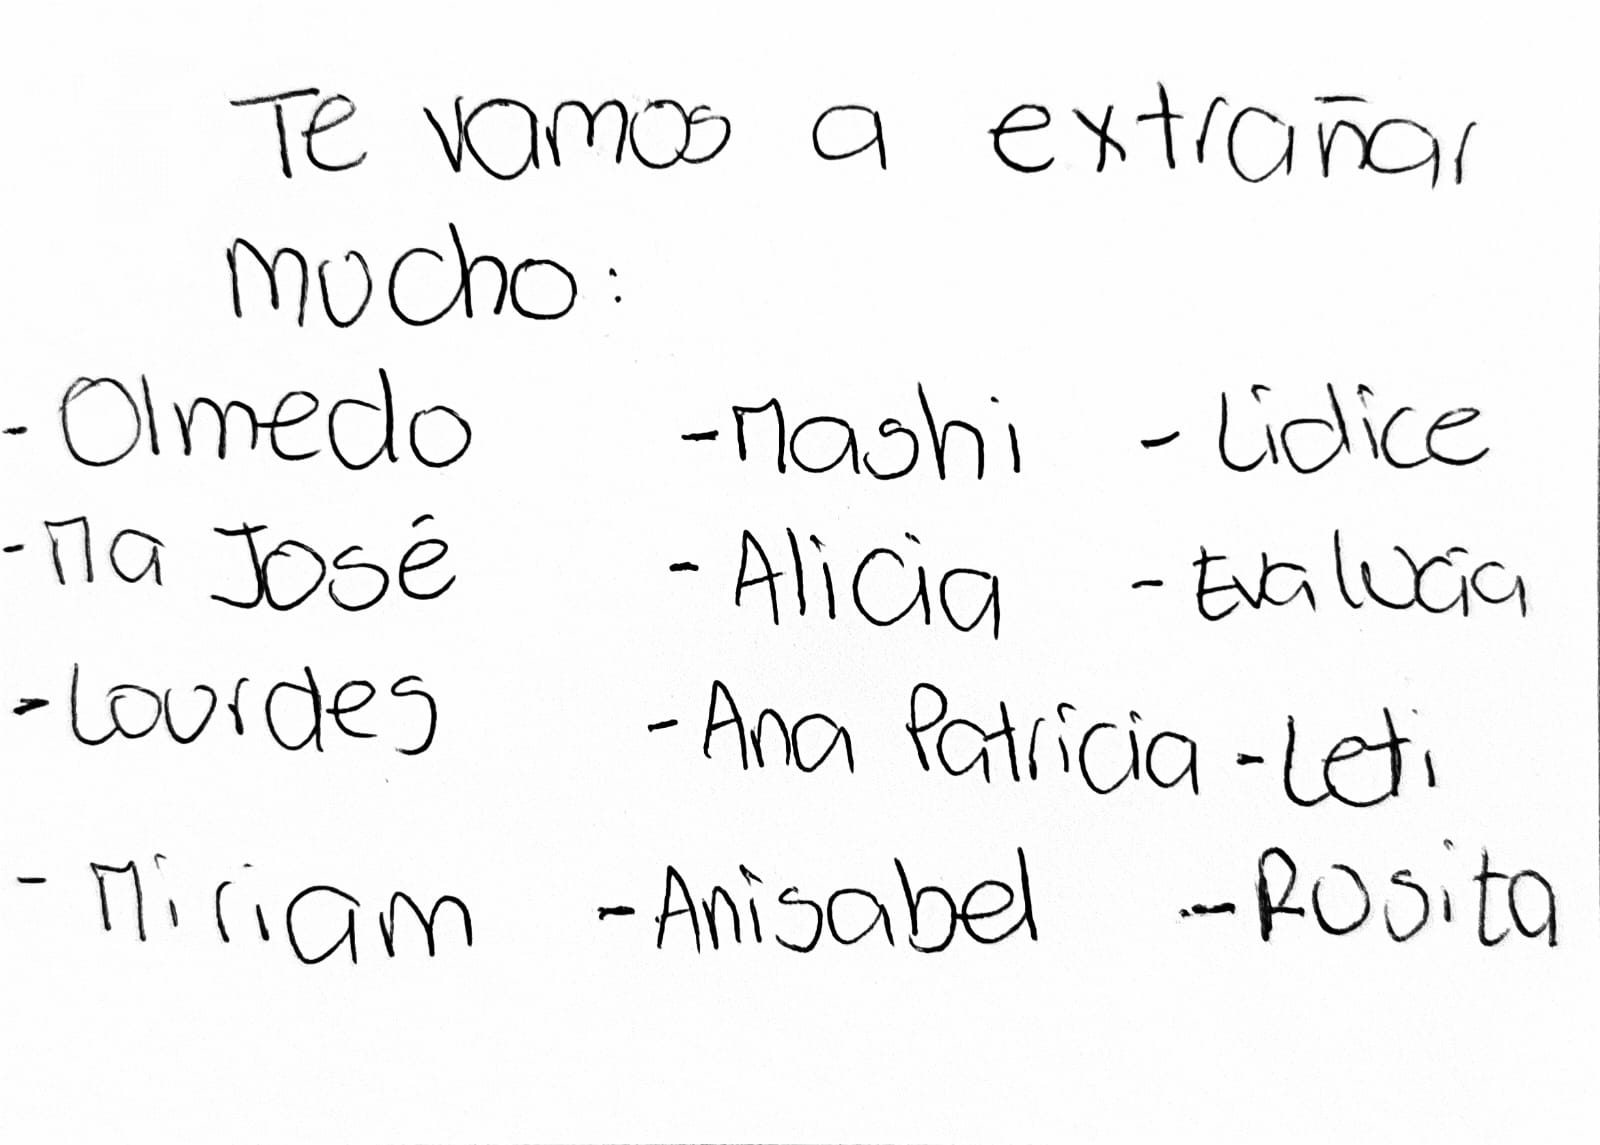 Te vamos a extrañar
mucho:
- Olmedo - Mashi - Lidice
- Ma José - Alicia - Eva lucía
- Lourdes - Ana Patricia - Leti
- Miriam - Anisabel - Rosita